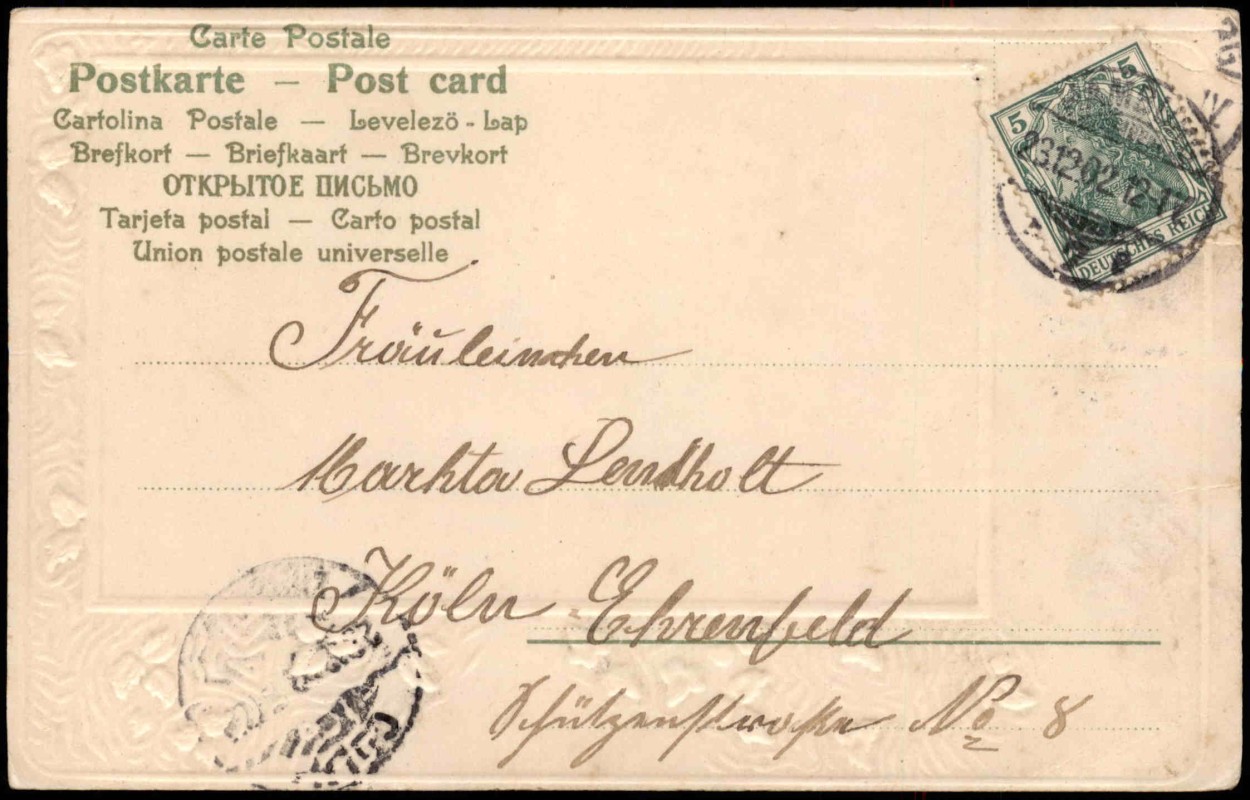 Carte Postale
Postkarte — Post card
Cartolina Postale — Levelezö - Lap
Brefkort — Briefkaart — Brevkort
ОТКРЫТОЕ ПИСЬМО
Tarjeta postal — Carto postal
Union postale universelle
5 5
23.12.02.12-1
DEUTSCHES REICH
Fräuleinchen
Markta Lendholt
Köln Ehrenfeld
Schützenstraße No 8